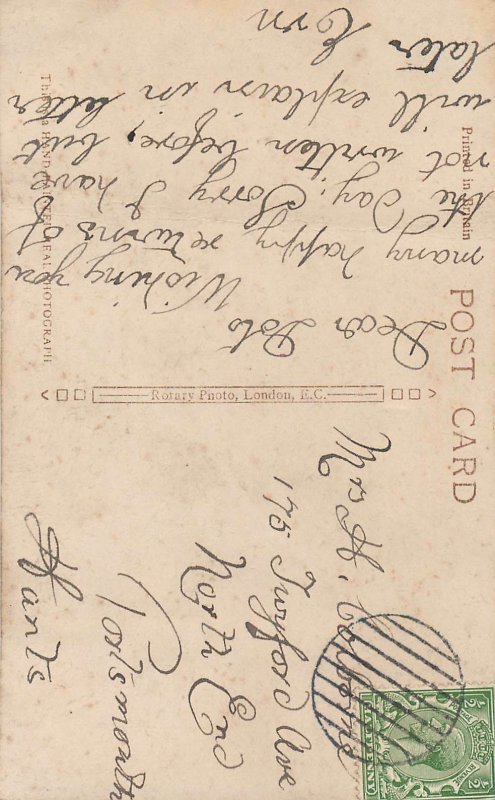 POST CARD
Printed in Britain
Rotary Photo, London, E.C.
Dear Dot
Wishing you
many happy returns of
the day. Sorry I have
not written before, but
will explain in letter
later
Ern
Mrs H.
175 Twyford Ave
North End
Portsmouth
Hants
HALFPENNY